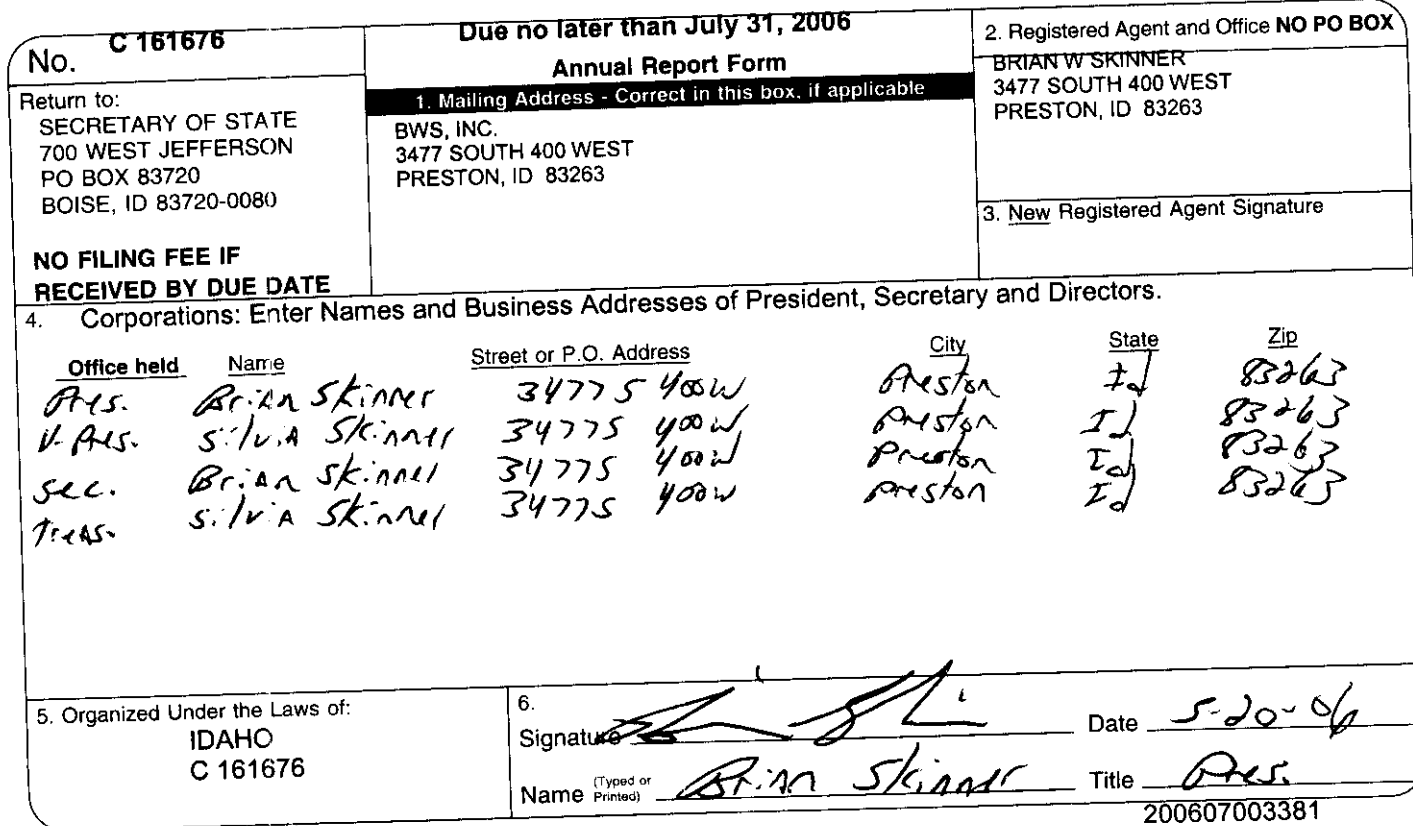 No. C 161676
Return to:
SECRETARY OF STATE
700 WEST JEFFERSON
PO BOX 83720
BOISE, ID 83720-0080
NO FILING FEE IF
RECEIVED BY DUE DATE
Due no later than July 31, 2006
Annual Report Form
1. Mailing Address - Correct in this box, if applicable
BWS, INC.
3477 SOUTH 400 WEST
PRESTON, ID 83263
2. Registered Agent and Office NO PO BOX
BRIAN W SKINNER
3477 SOUTH 400 WEST
PRESTON, ID 83263
3. New Registered Agent Signature
4. Corporations: Enter Names and Business Addresses of President, Secretary and Directors.
Office held Name Street or P.O. Address City State Zip
Pres. Brian Skinner 3477 S 400 W Preston Id 83263
V. Pres. Silvia Skinner 3477 S 400 W Preston Id 83263
Sec. Brian Skinner 3477 S 400 W Preston Id 83263
Treas. Silvia Skinner 3477 S 400 W Preston Id 83263
5. Organized Under the Laws of:
IDAHO
C 161676
6.
Signature Date 5-20-06
Name (Typed or Printed) Brian Skinner Title Pres.
200607003381